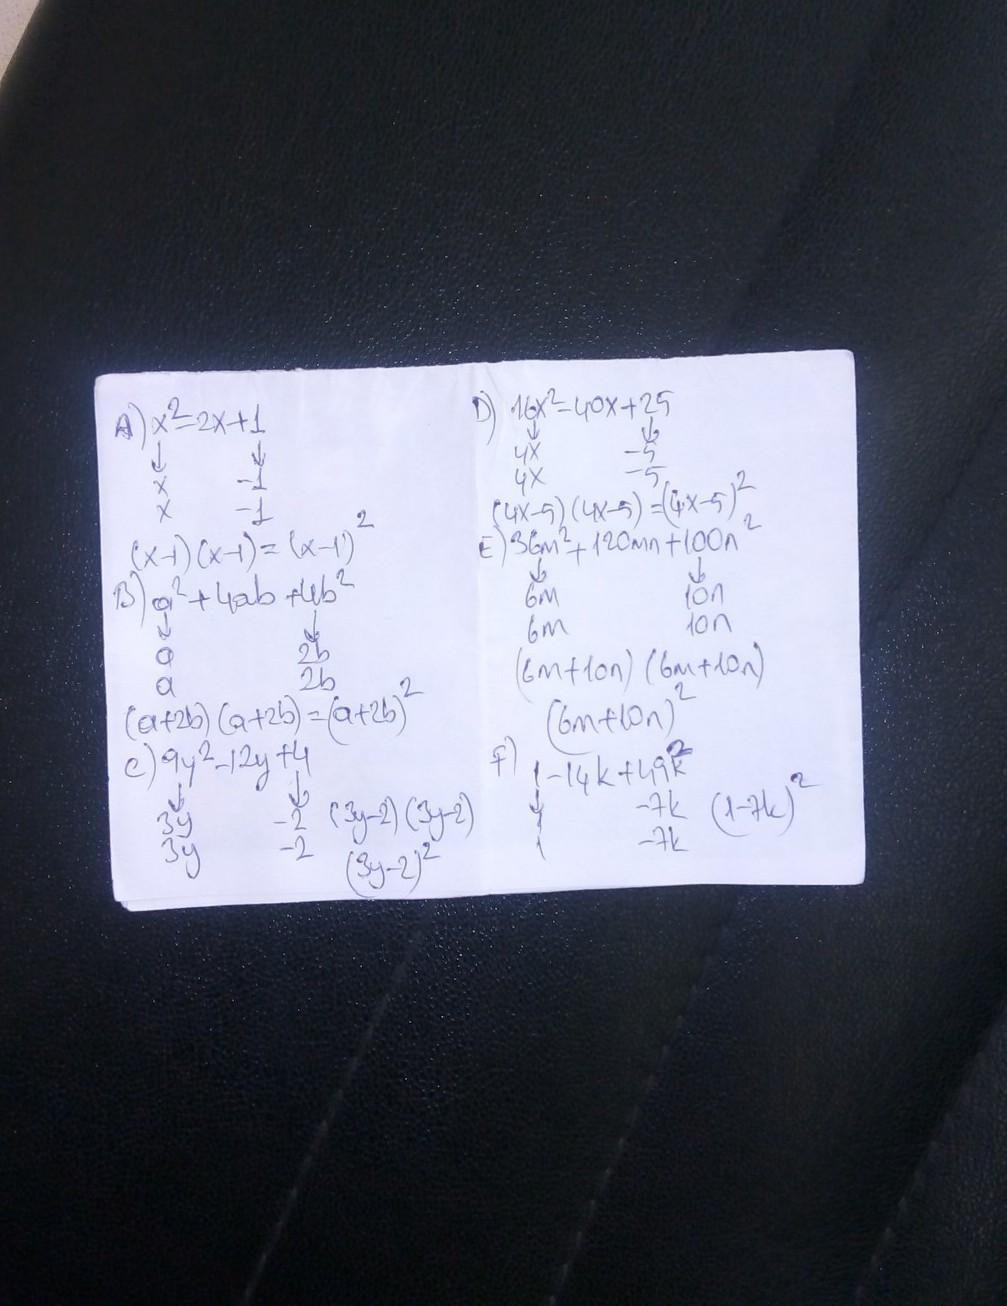 A) x²-2x+1
↓ ↓
x -1
x -1
(x-1)(x-1)=(x-1)²
B) a²+4ab+4b²
↓ ↓
a 2b
a 2b
(a+2b)(a+2b)=(a+2b)²
C) 9y²-12y+4
↓ ↓
3y -2 (3y-2)(3y-2)
3y -2 (3y-2)²
D) 16x²-40x+25
↓ ↓
4x -5
4x -5
(4x-5)(4x-5)=(4x-5)²
E) 36m²+120mn+100n²
↓ ↓
6m 10n
6m 10n
(6m+10n)(6m+10n)
(6m+10n)²
F) 1-14k+49k²
↓
1 -7k (1-7k)²
1 -7k